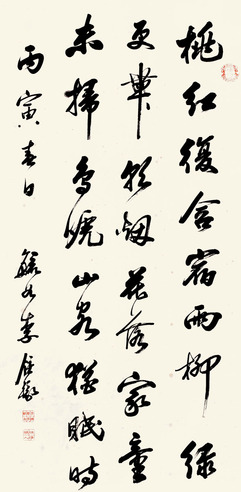 桃紅復含宿雨柳綠
更帶朝烟花落家童
未掃鳥啼山客猶眠時
丙寅春日 李